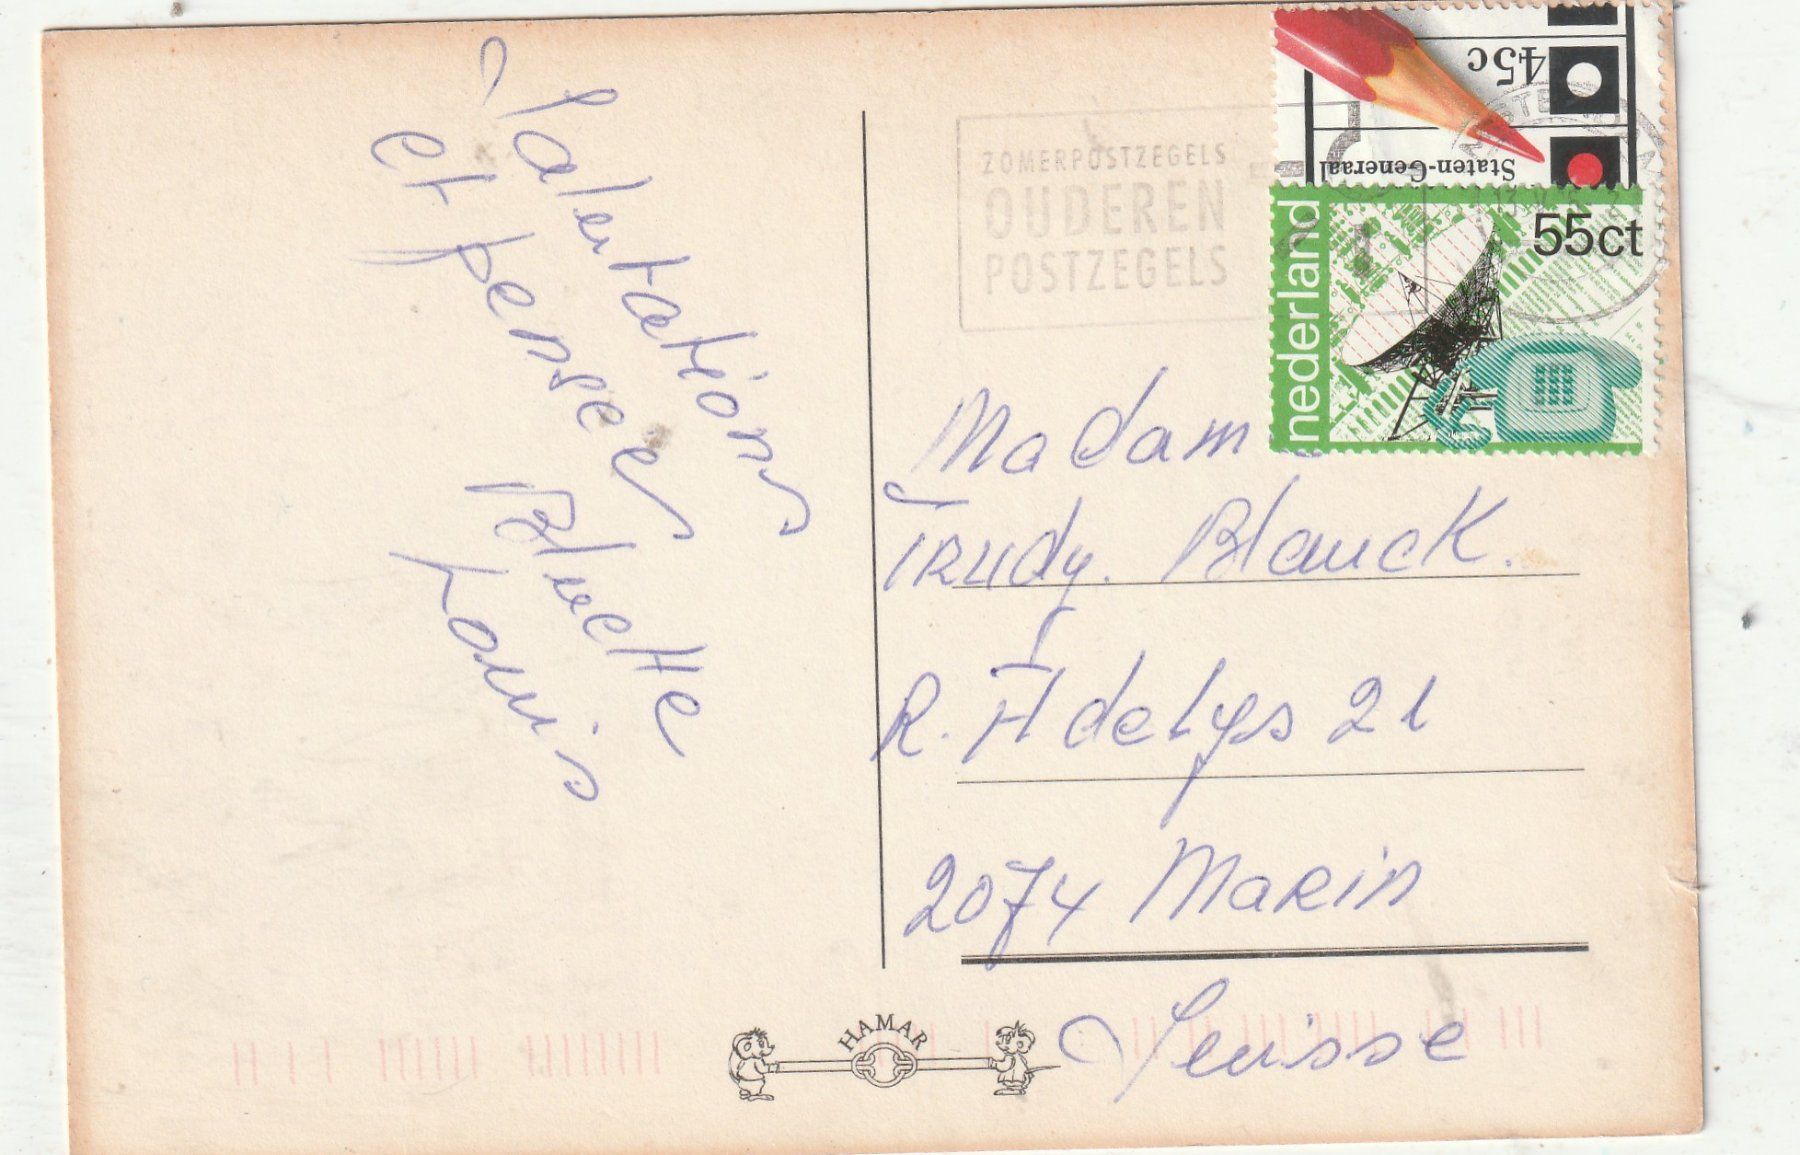 Salutations
et pensées
Bluette
Louis
ZOMERPOSTZEGELS
OUDEREN
POSTZEGELS
45c
Staten-Generaal
nederland
55ct
Madam
Trudy. Blanck.
R. Fldelys 21
2074 Marin
Suisse
HAMAR